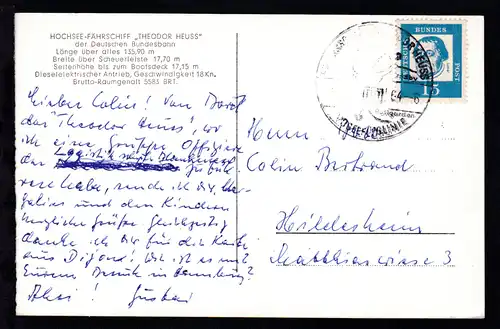 HOCHSEE-FÄHRSCHIFF „THEODOR HEUSS"
der Deutschen Bundesbahn
Länge über alles 135,90 m
Breite über Scheuerleiste 17,70 m
Seitenhöhe bis zum Bootsdeck 17,15 m
Dieselelektrischer Antrieb, Geschwindigkeit 18 Kn.
Brutto-Raumgehalt 5583 BRT.
Lieber Colin! Von Bord
der "Theodor Heuss", wo
ich eine Gruppe Offiziere
der
habe, sende ich Dir,
und den Kindern
herzliche Grüße. Gleichzeitig
danke ich Dir für die Karte
aus Dijon! Wie ist es mit
Eurem Besuch in
Ahoi!
DEUTSCHE BUNDESPOST
15
VOGELFLUGLINIE
Herrn
Colin Bertrand
Hildesheim
Matthiaswiese 3